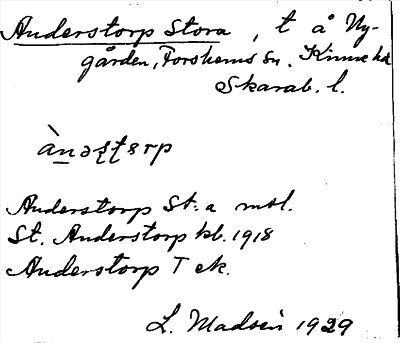 Anderstorp Stora, t å Ny-
gården, Forshems sn. Kinne hd
Skarab. l.
ànəʂʈɛrp
Anderstorp St:a mtl.
St. Anderstorp kb. 1918
Anderstorp T ek.
L. Madsén 1929